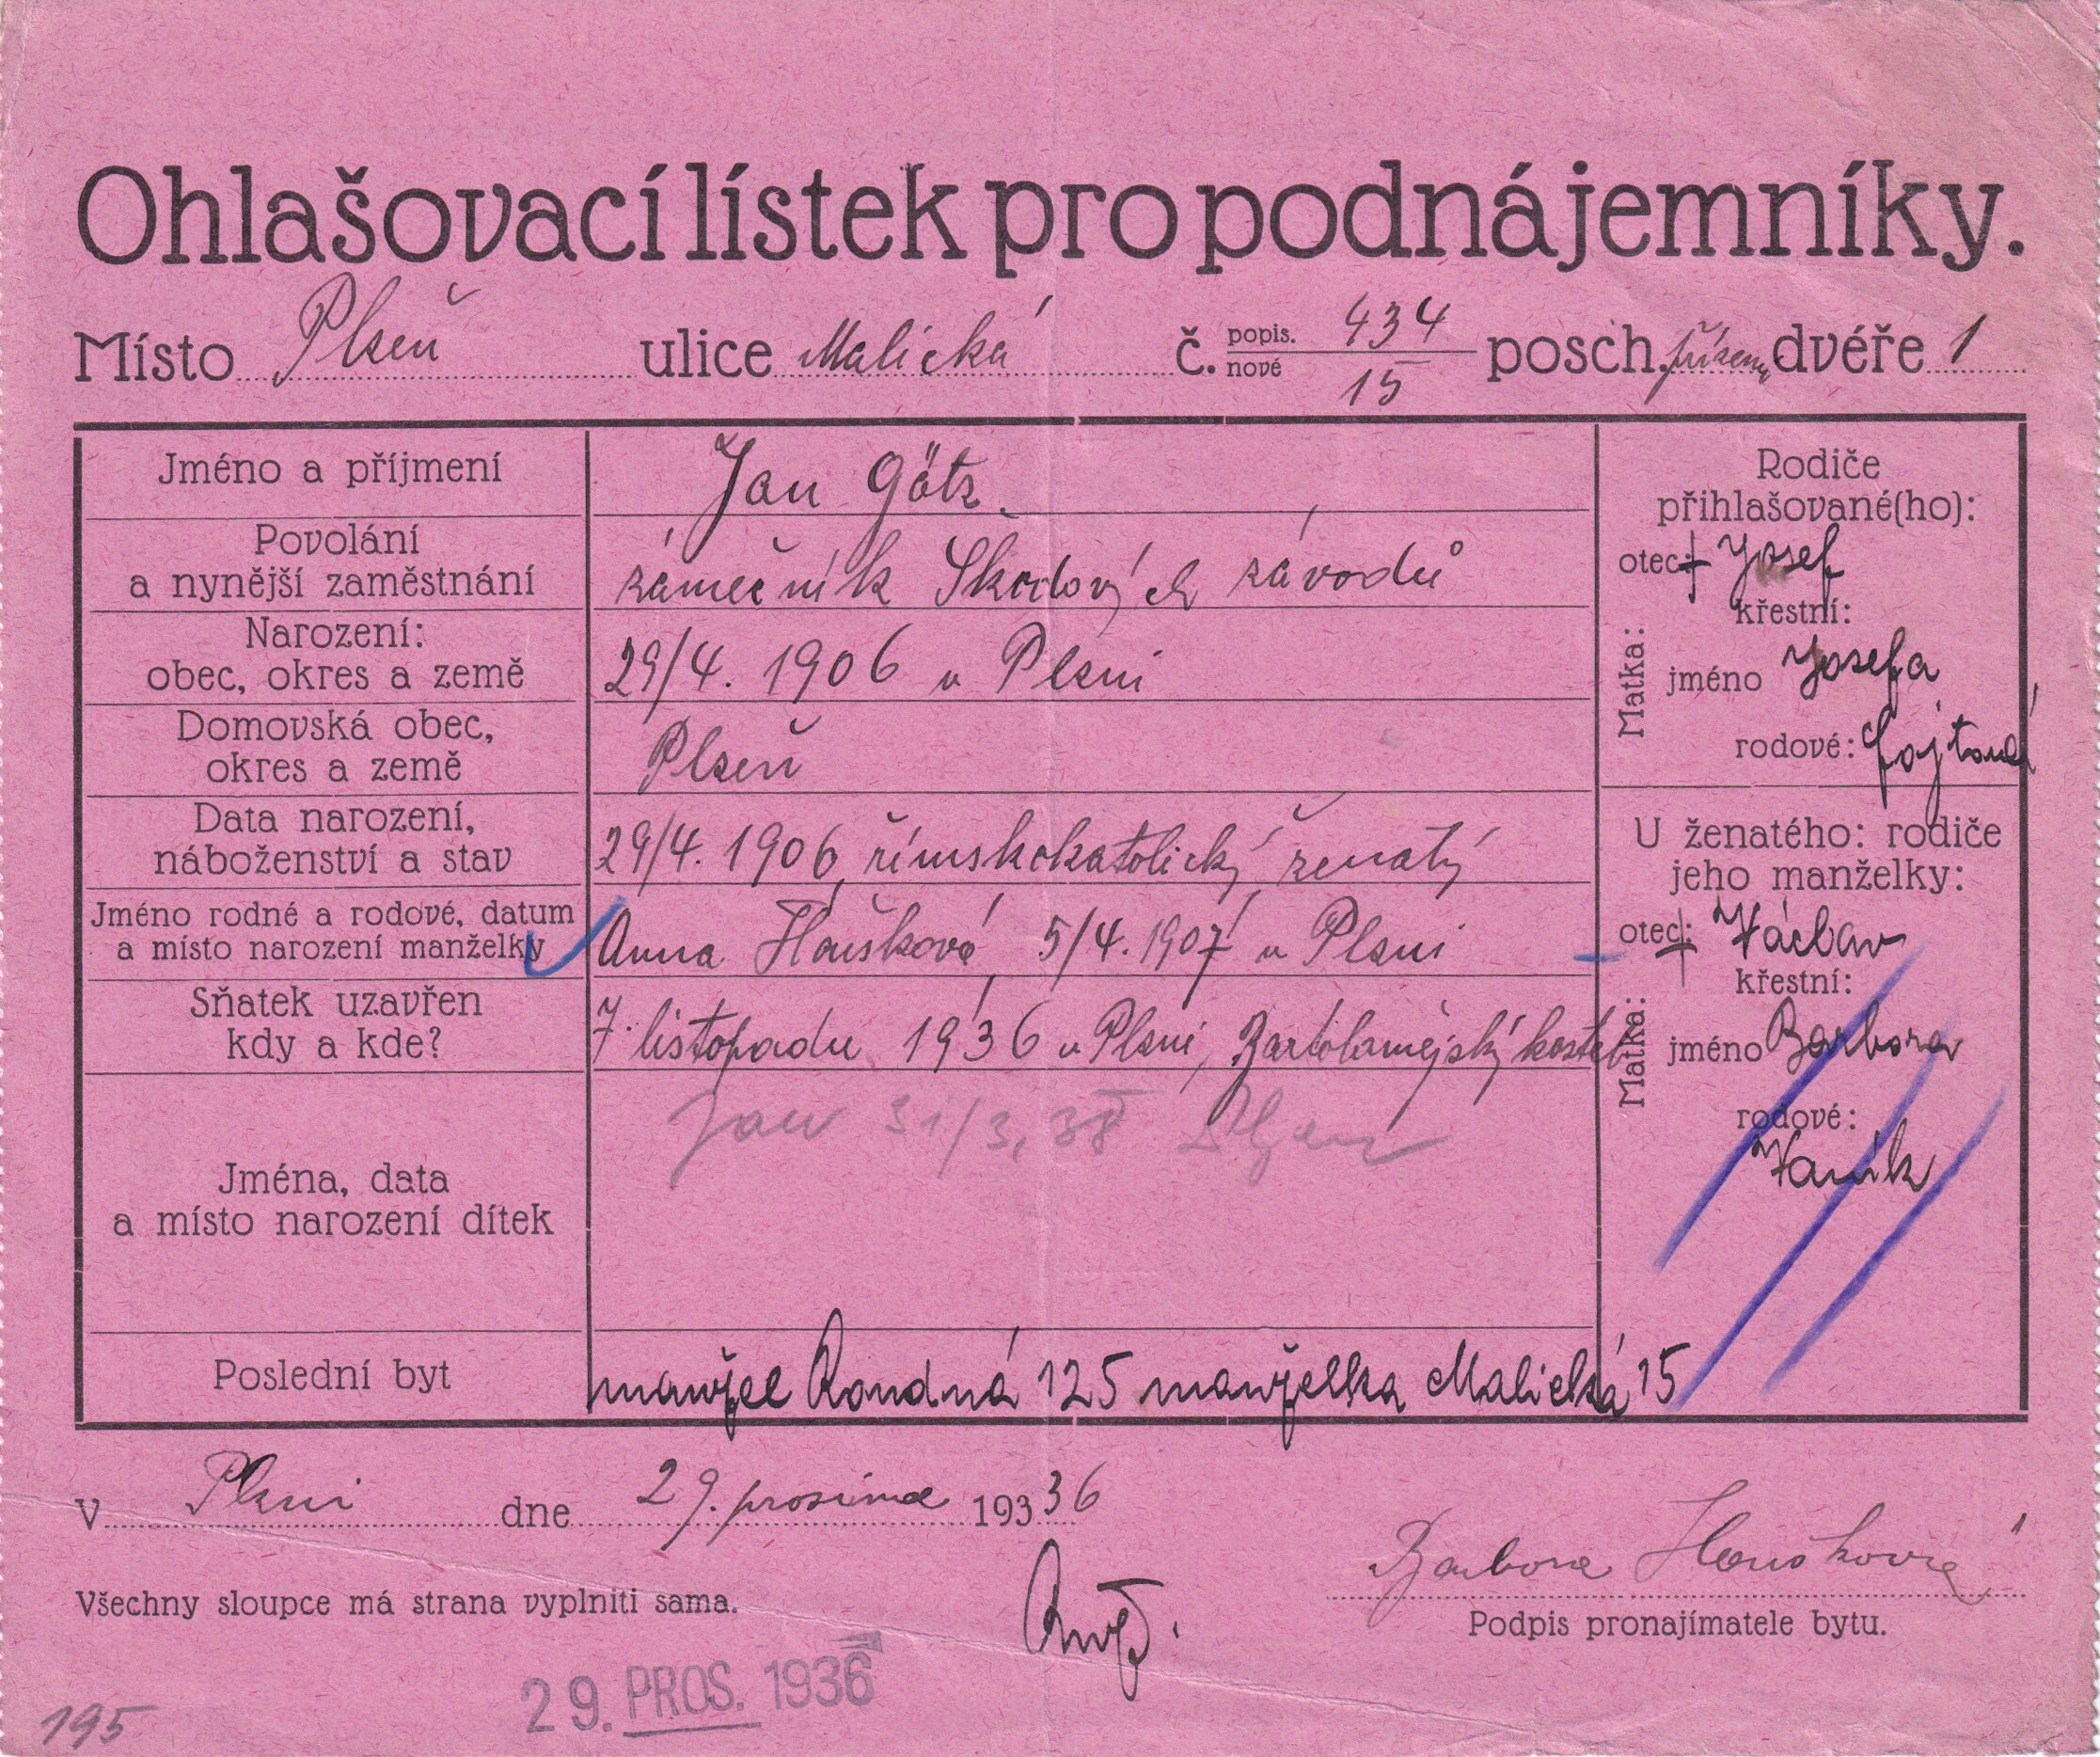 Ohlašovací lístek pro podnájemníky.
Místo Plzeň ulice Malická č. popis. 434 nové 15 posch. přízemí dvéře 1
Jméno a příjmení
Jan Götz
Povolání
a nynější zaměstnání
zámečník Škodových závodů
Narození:
obec, okres a země
29/4. 1906 v Plzni
Domovská obec,
okres a země
Plzeň
Data narození,
náboženství a stav
29/4. 1906, římskokatolický, ženatý
Jméno rodné a rodové, datum
a místo narození manželky
Anna Houšková, 5/4. 1907 v Plzni
Sňatek uzavřen
kdy a kde?
7. listopadu 1936 v Plzni, Bartolomějský kostel
Jména, data
a místo narození dítek
Jan 31/3, 38 Plzeň
Poslední byt
manžel Rondná 125 manželka Malická 15
Rodiče
přihlašované(ho):
otec: † Josef
Matka:
křestní:
jméno Josefa
rodové:
U ženatého: rodiče
jeho manželky:
otec: † Václav
Matka:
křestní:
jméno Barbora
rodové:
Vaník
V Plzni dne 29. prosince 193 36
Všechny sloupce má strana vyplniti sama.
Barbora Houšková
Podpis pronajímatele bytu.
29. PROS. 1936
195